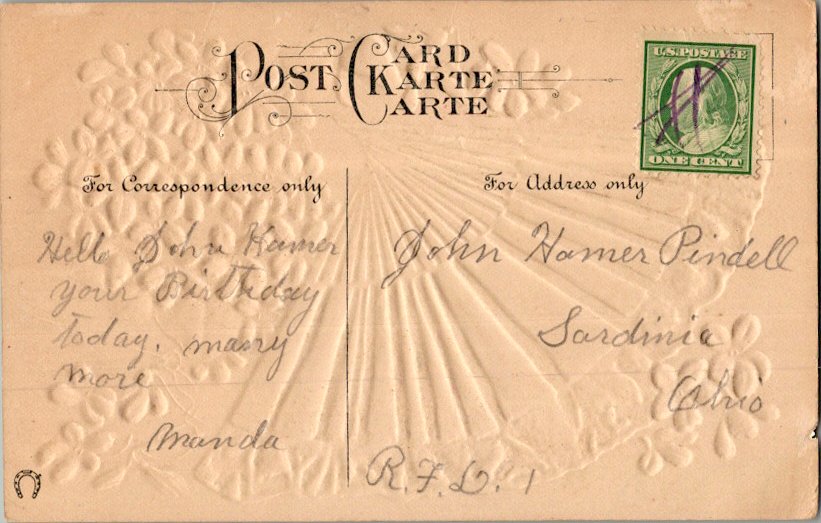 POST CARD
KARTE
CARTE
U.S. POSTAGE
ONE CENT
For Correspondence only
For Address only
Hello John Hamer
your Birthday
today. many
more
Manda
John Hamer Pindell
Sardinia
Ohio
R.F.D. 1